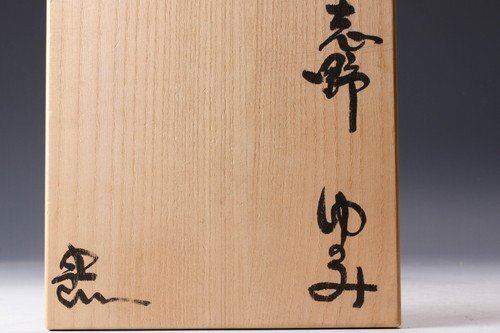 志野
ゆのみ